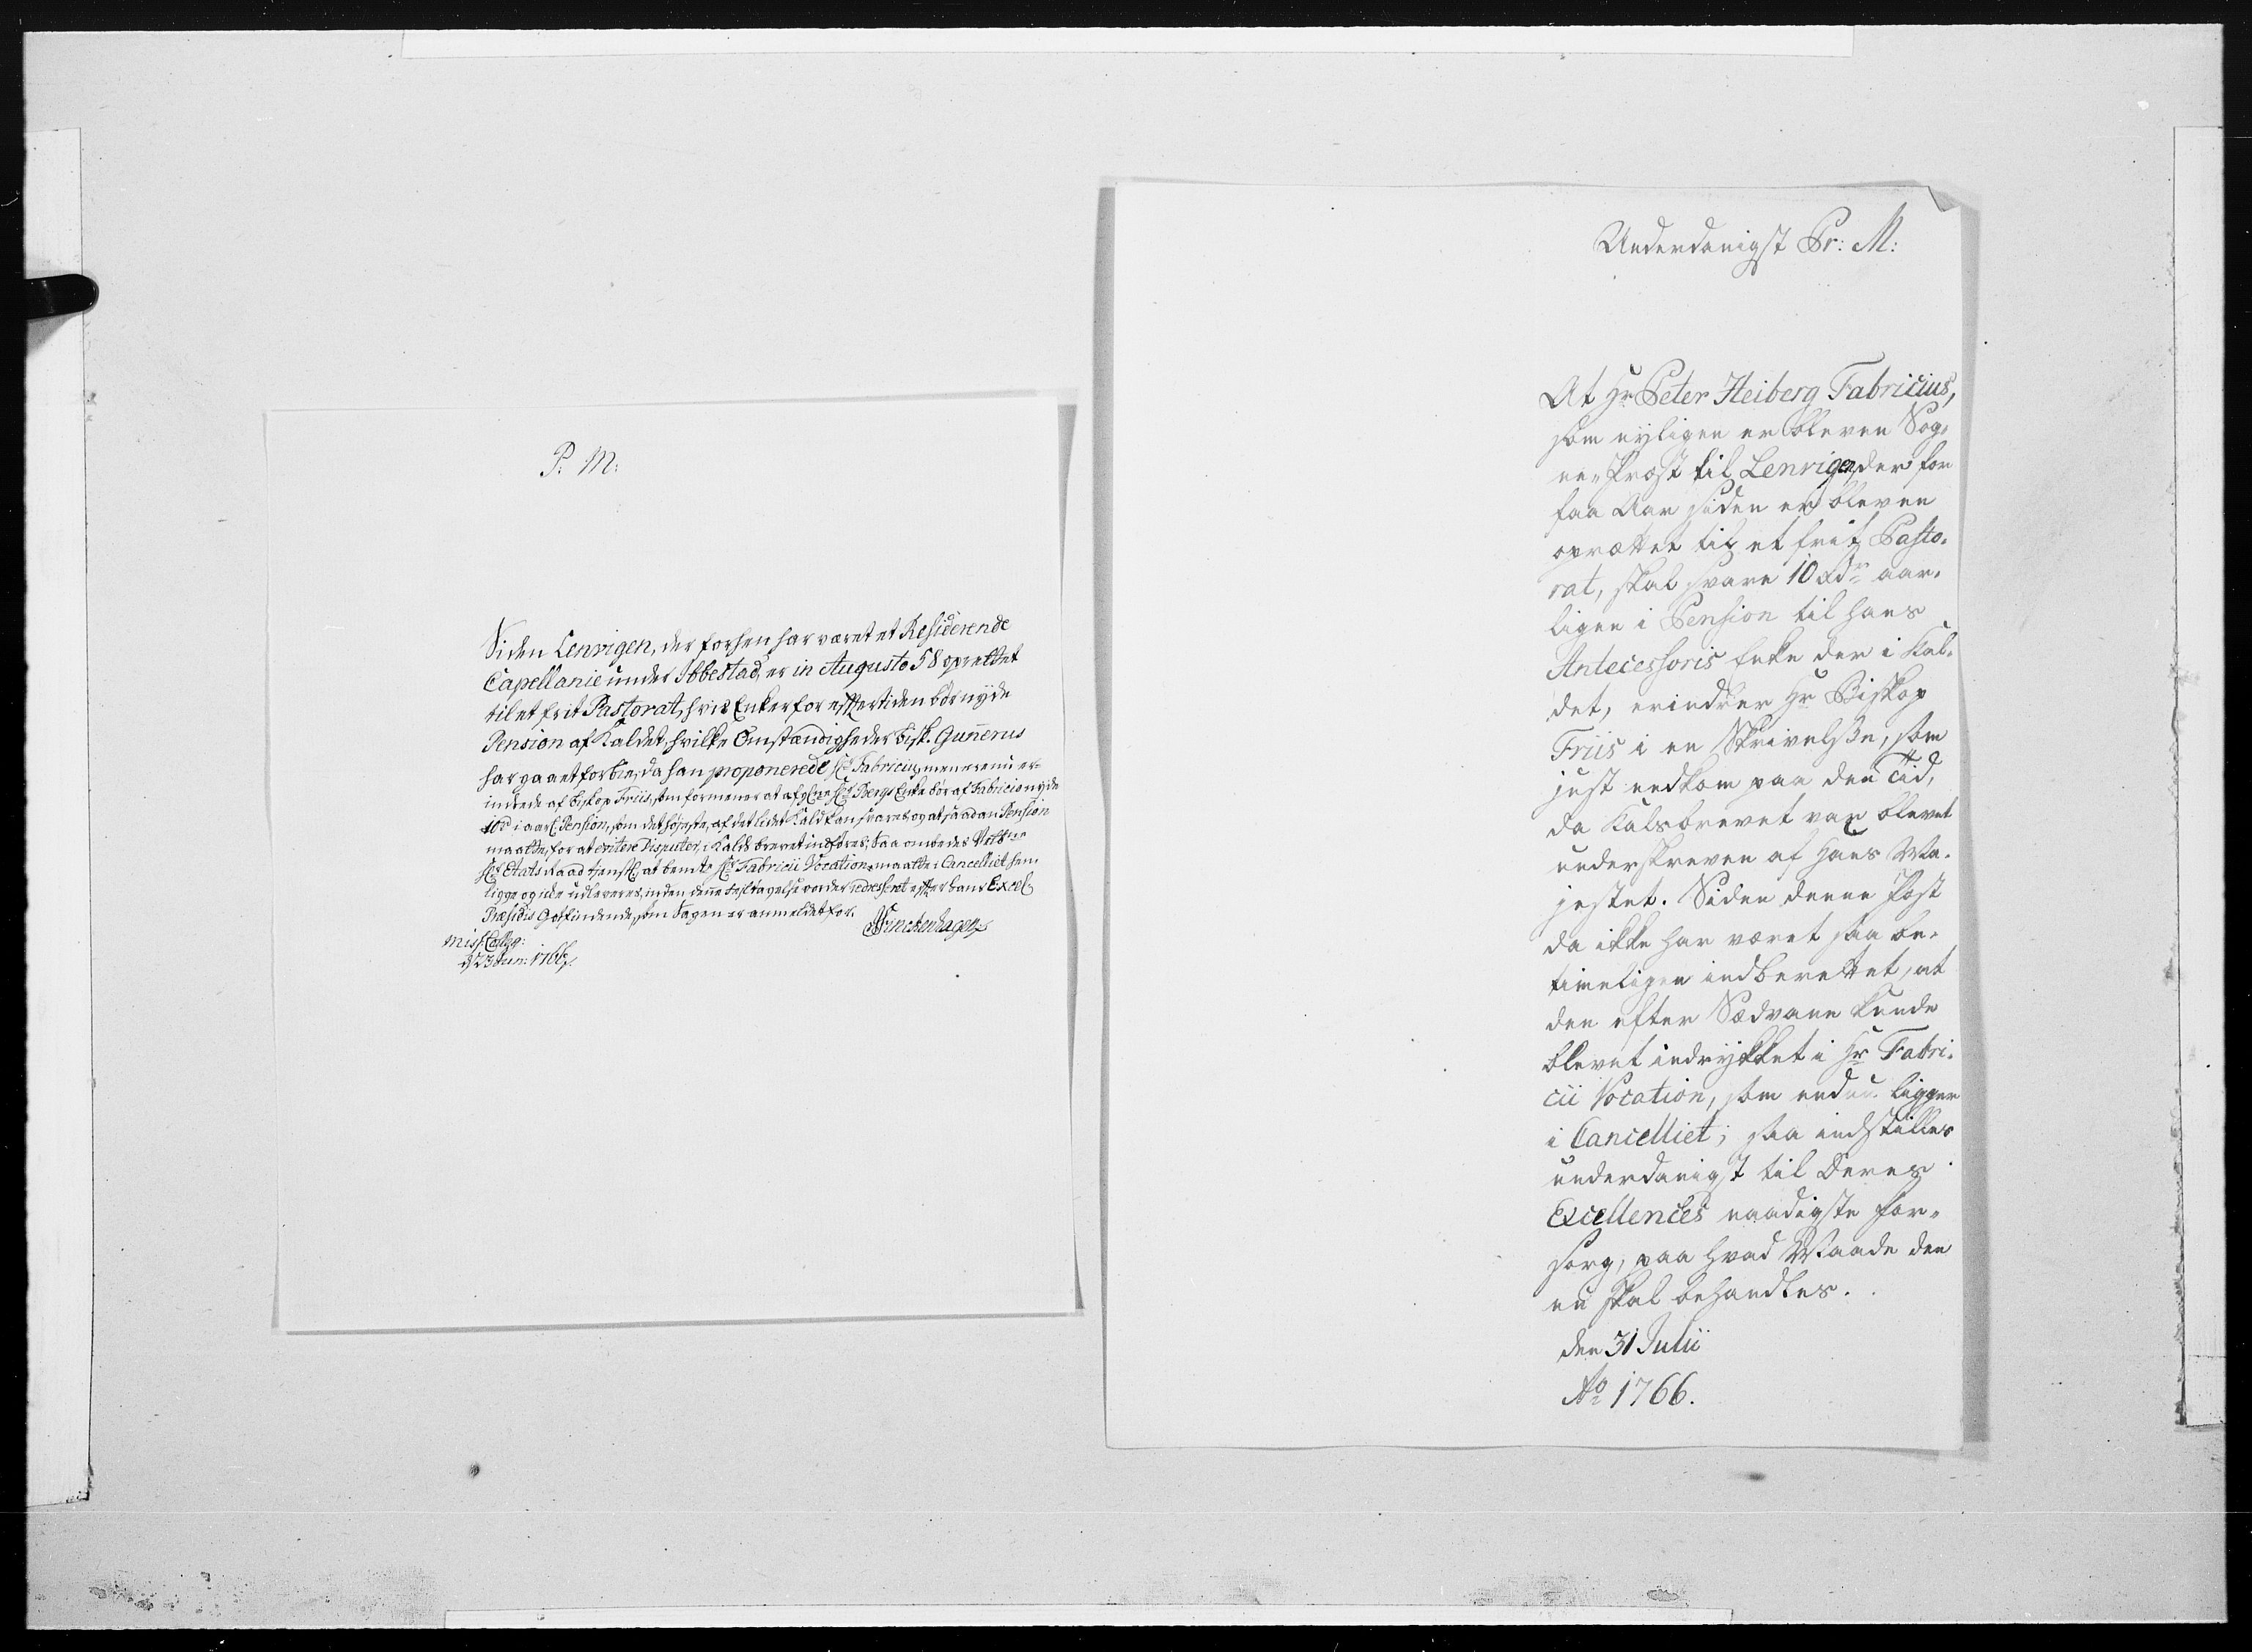 P: M:
Siden Lenvigen, der forhen har været et Residerende
Capellanie under Ibbestad, er in Augusto 58 oprettet
til et frit Pastorat, hvis Enker for efftertiden bør nyde
Pension af Kaldet, hvilke Omstændigheder Bisk. Gunnerus
har gaaet forbie, da han proponerede Hr Fabricius, men er nu er-
indrede af Biskop Friis, som formener at afgl: Hr Bergs Enke bør af Fabricio nyde
10 rd i aarl: Pension, som det højeste, af det lidet Kald kan svares og at saadan Pension
maatte, for at evitere Disputer, i Kaldsbrevet indføres; Saa ombedes
Hr Etatsraad tjenstl: at bemte Hr Fabricii Vocation maatte i Cancelliet hen-
ligge og ikke udleveres, inden denne vorder redresseret effter hans Excell:
Præsidis Gotfindende, som Sagen er anmeldet for.
Finckenhagen
Miss: Colleg:
d 23 1766.
Underdanigst Pr: M:
At Hr Peter Heiberg Fabricius,
som nyligen er bleven Sog-
ne-Præst til Lenvigen, der for
faa Aar siden er bleven
oprættet til et frit Pasto-
rat, skal svare 10 Rdr aar-
ligen i Pension til hans
Antecessoris Enke der i Kal-
det, erindrer Hr Biskop
Friis i en Skrivelse, som
just indkom paa den Tid,
da Kalsbrevet var blevet
underskreven af Hans Ma-
jestet. Siden denne Post
da ikke har været saa be-
timeligen indberettet, at
den efter Sædvane kunde
blevet indrykket i Hr Fabri-
cii Vocation, som endnu ligger
i Cancelliet; saa indstilles
underdanigst til Deres
Excellences naadigste For-
sorg, paa hvad Maade den
nu skal behandles.
den 31 Julii
Ao 1766.